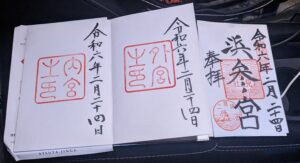 令和六年二月二十四日
浜参宮
奉拝
令和六年二月二十四日
外宮
之印
令和六年二月二十四日
内宮
之印